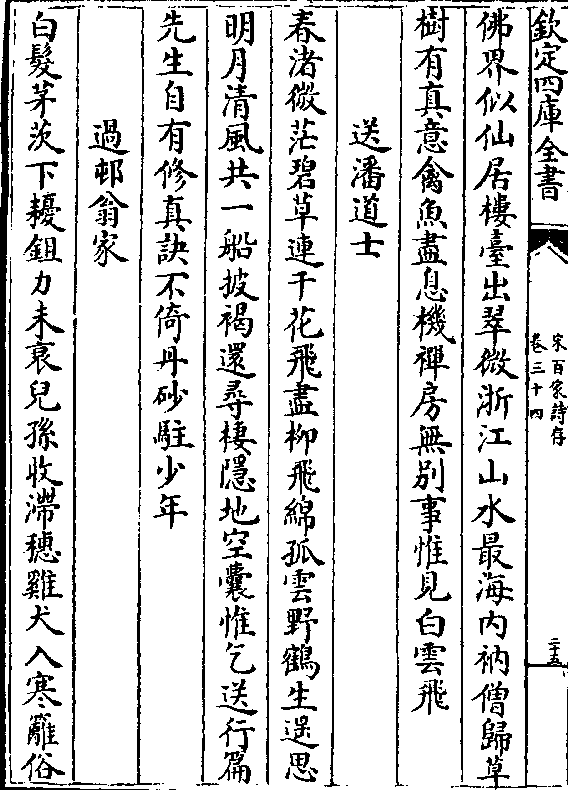 欽定四庫全書
宋百家詩存
卷三十四
二十五
佛界似仙居樓臺出翠微浙江山水最海内衲僧歸草
樹有真意禽魚盡息機禪房無别事惟見白雲飛
送潘道士
春渚微茫碧草連千花飛盡柳飛綿孤雲野鶴生遐思
明月清風共一船披褐還尋棲隱地空囊惟乞送行篇
先生自有修真訣不倚丹砂駐少年
過邨翁家
白髮茅茨下耰鉏力未衰兒孫收滯穗雞犬入寒籬俗